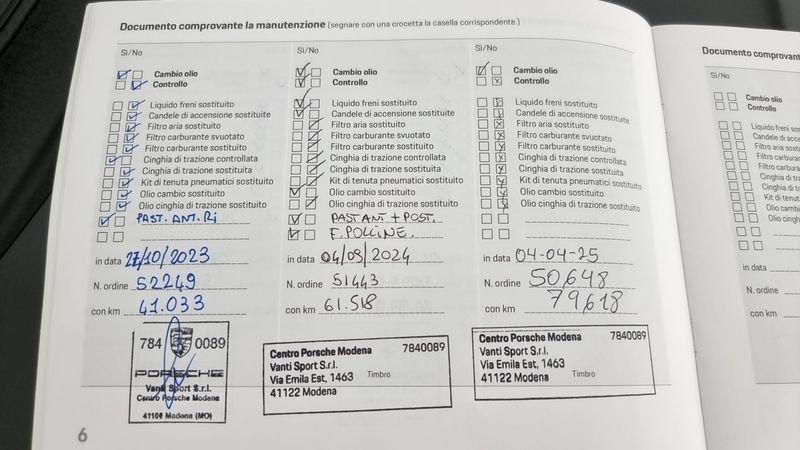 Documento comprovante la manutenzione (segnare con una crocetta la casella corrispondente.)
Sì/No
Cambio olio
Controllo
Liquido freni sostituito
Candele di accensione sostituite
Filtro aria sostituito
Filtro carburante svuotato
Filtro carburante sostituito
Cinghia di trazione controllata
Cinghia di trazione sostituita
Kit di tenuta pneumatici sostituito
Olio cambio sostituito
Olio cinghia di trazione sostituito
PAST. ANT. Ri
in data 27/10/2023
N. ordine 52249
con km 41.033
784 0089
PORSCHE
Vanti Sport S.r.l.
Centro Porsche Modena
Modena (MO)
Sì/No
Cambio olio
Controllo
Liquido freni sostituito
Candele di accensione sostituite
Filtro aria sostituito
Filtro carburante svuotato
Filtro carburante sostituito
Cinghia di trazione controllata
Cinghia di trazione sostituita
Kit di tenuta pneumatici sostituito
Olio cambio sostituito
Olio cinghia di trazione sostituito
PAST ANT + POST.
F. POLLINE.
in data 04/09/2024
N. ordine 51443
con km 61.518
Centro Porsche Modena 7840089
Vanti Sport S.r.l.
Via Emilia Est, 1463 Timbro
41122 Modena
Sì/No
Cambio olio
Controllo
Liquido freni sostituito
Candele di accensione sostituite
Filtro aria sostituito
Filtro carburante svuotato
Filtro carburante sostituito
Cinghia di trazione controllata
Cinghia di trazione sostituita
Kit di tenuta pneumatici sostituito
Olio cambio sostituito
Olio cinghia di trazione sostituito
in data 04-04-25
N. ordine 50,648
con km 79,618
Centro Porsche Modena 7840089
Vanti Sport S.r.l.
Via Emilia Est, 1463 Timbro
41122 Modena
6
Documento comprovan
Sì/No
Cambio olio
Controllo
Liquido freni sostituito
Candele di accension
Filtro aria sostituito
Filtro carburante
Filtro carburan
Cinghia di tra
Cinghia di tr
Kit di tenut
Olio cambi
Olio cinghi
in data
N. ordine
con km